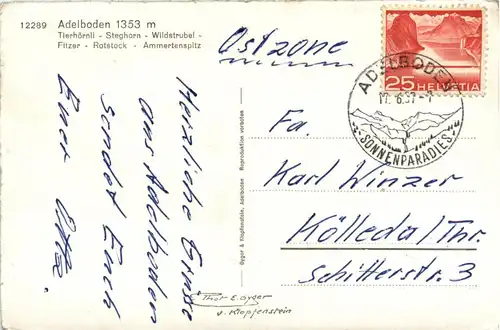 12289 Adelboden 1353 m
Tierhörnli - Steghorn - Wildstrubel -
Fitzer - Rotstock - Ammertenspitz
Herzliche Grüsse
aus Adelboden
sendet Euch
Euer Otto.
Gyger & Klopfenstein, Adelboden Reproduktion verboten
Phot E. Gyger
v. Klopfenstein
Ostzone
25 HELVETIA
ADELBODEN
SONNENPARADIES
Fa.
Karl Winzer
Kölleda/Thr.
Schillerstr. 3